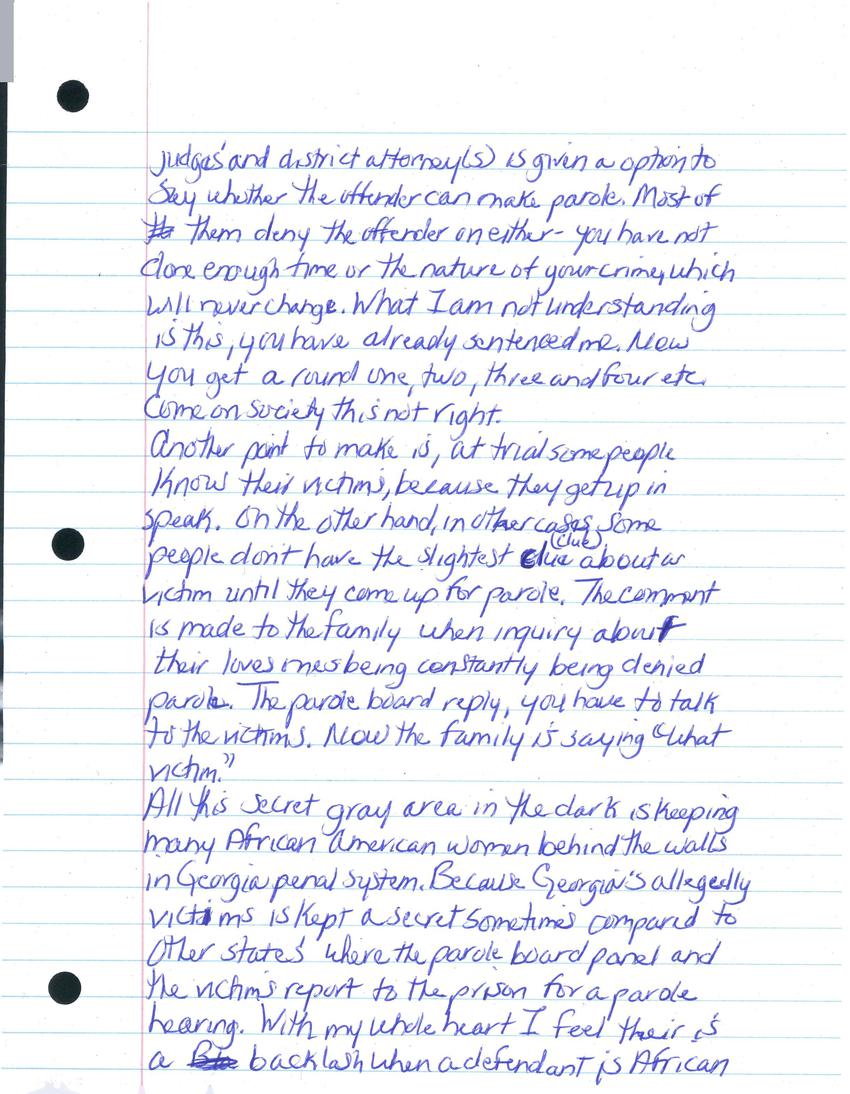 judges' and district attorney(s) is given a option to
Say whether the offender can make parole. Most of
them deny the offender on either - you have not
done enough time or the nature of your crime, which
will never change. What I am not understanding
is this, you have already sentenced me. Now
you get a round one, two, three and four etc.
Come on society this not right.
Another point to make is, at trial some people
Know their victims, because they get up in
speak. On the other hand, in other cases some
(clue)
people don't have the slightest clue about a
victim until they come up for parole. The comment
is made to the family when inquiry about
their loves ones being constantly being denied
parole. The parole board reply, you have to talk
to the victims. Now the family is saying "what
victim."
All this secret gray area in the dark is keeping
many African American women behind the walls
in Georgia penal system. Because Georgia's allegedly
victims is kept a secret sometimes compared to
Other states' where the parole board panel and
the victims report to the prison for a parole
hearing. With my whole heart I feel their is
a backlash when a defendant is African